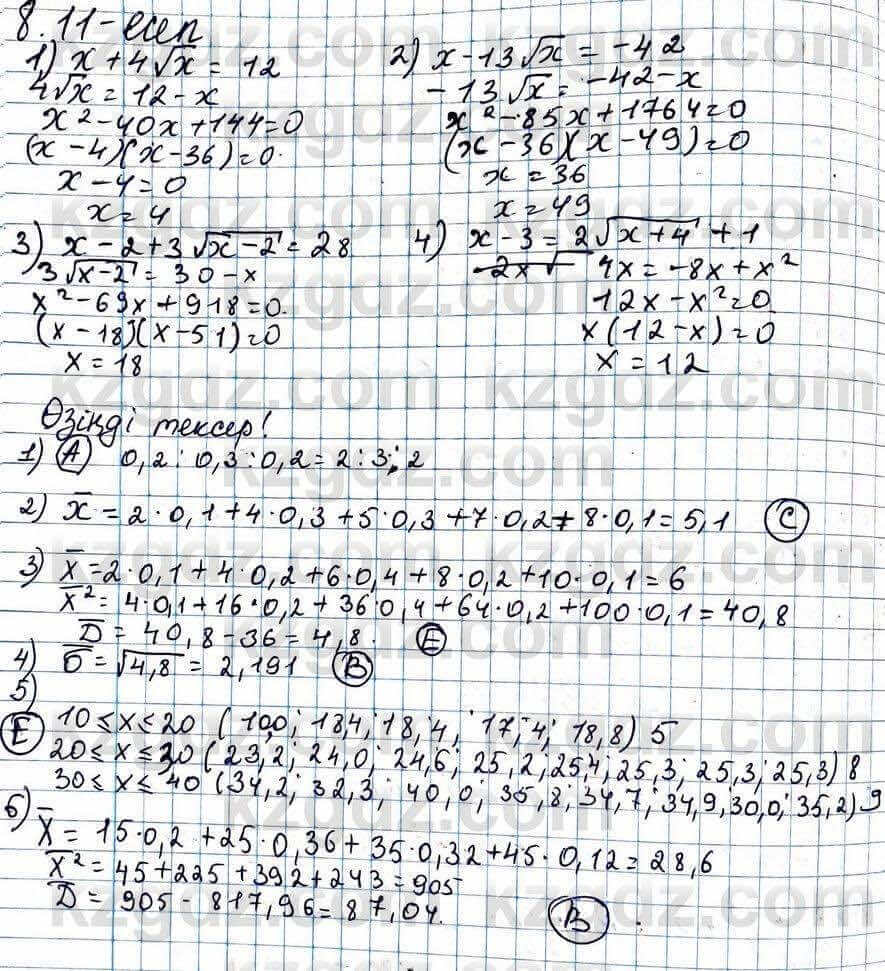 8.11-есеп
1) x + 4√x = 12
4√x = 12 - x
x² - 40x + 144 = 0
(x - 4)(x - 36) = 0.
x - 4 = 0
x = 4
2) x - 13√x = -42
-13√x = -42 - x
x² - 85x + 1764 = 0
(x - 36)(x - 49) = 0
x = 36
x = 49
3) x - 2 + 3√x-2 = 28
3√x-2 = 30 - x
x² - 69x + 918 = 0.
(x - 18)(x - 51) = 0
x = 18
4) x - 3 = 2√x+4 + 1
4x = -8x + x²
12x - x² = 0
x(12 - x) = 0
x = 12
Өзіңді тексер!
1) A) 0,2 : 0,3 : 0,2 = 2 : 3 : 2
2) x̄ = 2·0,1 + 4·0,3 + 5·0,3 + 7·0,2 + 8·0,1 = 5,1 C
3) x̄ = 2·0,1 + 4·0,2 + 6·0,4 + 8·0,2 + 10·0,1 = 6
x̄² = 4·0,1 + 16·0,2 + 36·0,4 + 64·0,2 + 100·0,1 = 40,8
D̄ = 40,8 - 36 = 4,8. E
4) б̄ = √4,8 = 2,191 B
5)
E 10 ≤ x ≤ 20 (10,0; 18,4; 18,4; 17,4; 18,8) 5
20 ≤ x ≤ 30 (23,2; 24,0; 24,6; 25,2; 25,4; 25,3; 25,3; 25,3) 8
30 ≤ x ≤ 40 (34,2; 32,3; 40,0; 35,8; 34,7; 34,9; 30,0; 35,2) 9
6) x̄ = 15·0,2 + 25·0,36 + 35·0,32 + 45·0,12 = 28,6
x̄² = 45 + 225 + 392 + 243 = 905
D̄ = 905 - 817,96 = 87,04. B
kzgdz.com